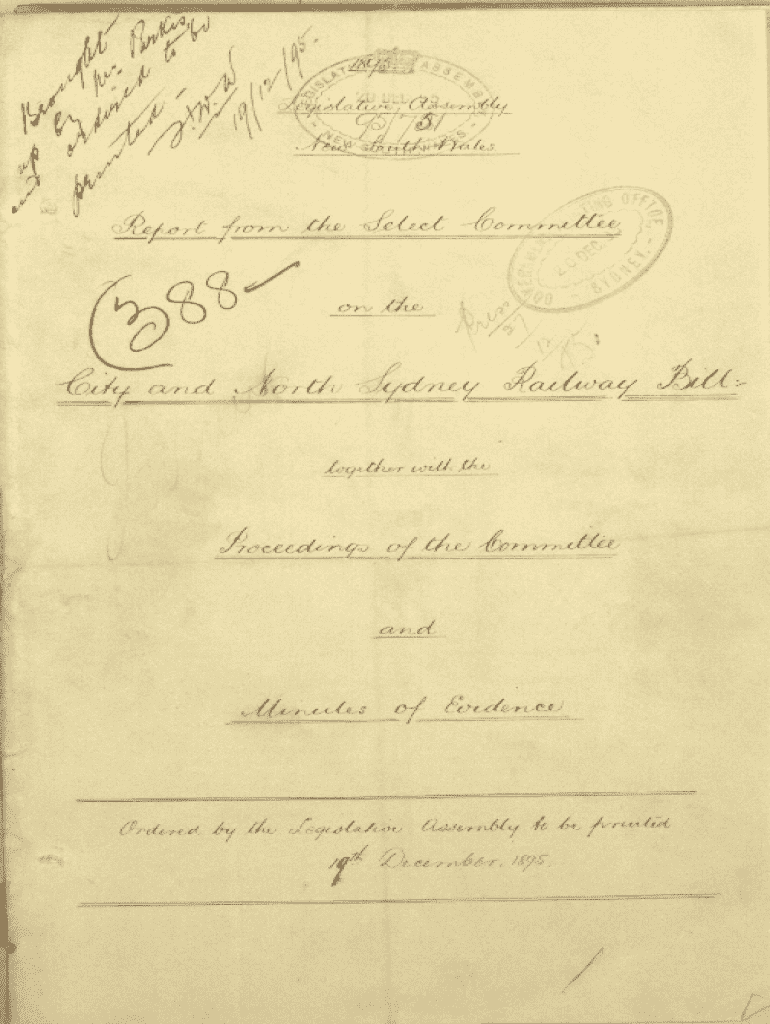 Brought
up by Mr. Parkes
and ordered to be
printed -
19/12/95.
1895
LEGISLATIVE ASSEMBLY
20 DEC 95
Legislative Assembly
95/751
NEW SOUTH WALES
New South Wales
Report from the Select Committee
GOVERNMENT PRINTING OFFICE
20 DEC
SYDNEY.
(388-
on the
27/12/95.
City and North Sydney Railway Bill-
together with the
Proceedings of the Committee
and
Minutes of Evidence
Ordered by the Legislative Assembly to be printed
19th December, 1895.